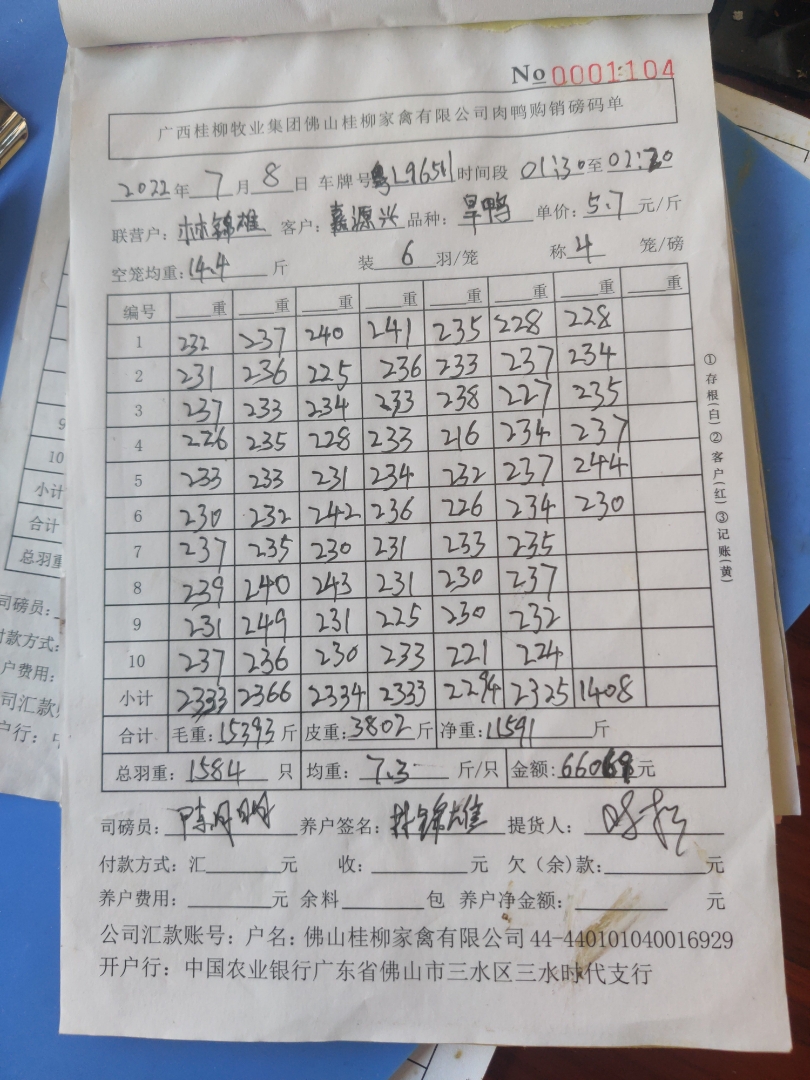 No 0001104
广西桂柳牧业集团佛山桂柳家禽有限公司肉鸭购销磅码单
2022年 7月 8日 车牌号粤L9651 时间段 01:30至02:20
联营户:林锦雄 客户:嘉源兴 品种:旱鸭 单价:5.7元/斤
空笼均重:14.4斤 装 6 羽/笼 称 4 笼/磅
编号 重 重 重 重 重 重 重 重
1 232 237 240 241 235 228 228
2 231 236 225 236 233 237 234
3 237 233 234 233 238 227 235
4 226 235 228 233 216 234 237
5 233 233 231 234 232 237 244
6 230 232 242 236 226 234 230
7 237 235 230 231 233 235
8 239 240 243 231 230 237
9 231 249 231 225 230 232
10 237 236 230 233 221 224
小计 2333 2366 2334 2333 2294 2325 1408
合计 毛重:15393斤 皮重:3802斤 净重:11591斤
总羽重:1584只 均重:7.3斤/只 金额:66069元
司磅员: 养户签名:林锦雄 提货人:
付款方式:汇 元 收: 元 欠(余)款: 元
养户费用: 元 余料 包 养户净金额: 元
公司汇款账号:户名:佛山桂柳家禽有限公司44-440101040016929
开户行:中国农业银行广东省佛山市三水区三水时代支行
①存根(白)②客户(红)③记账(黄)
9
10
小计
合计
总羽重
司磅员:
付款方式:
户费用:
司汇款
户行: